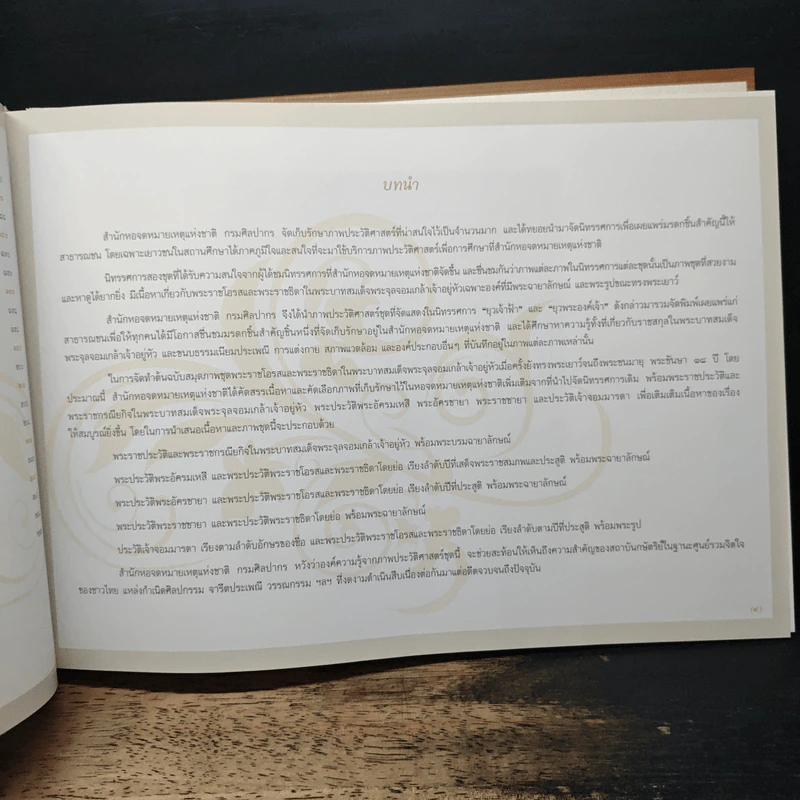 บทนำ
สำนักหอจดหมายเหตุแห่งชาติ กรมศิลปากร จัดเก็บรักษาภาพประวัติศาสตร์ที่น่าสนใจไว้เป็นจำนวนมาก และได้ทยอยนำมาจัดนิทรรศการเพื่อเผยแพร่มรดกชิ้นสำคัญนี้ให้
สาธารณชน โดยเฉพาะเยาวชนในสถานศึกษาได้ภาคภูมิใจและสนใจที่จะมาใช้บริการภาพประวัติศาสตร์เพื่อการศึกษาที่สำนักหอจดหมายเหตุแห่งชาติ
นิทรรศการสองชุดที่ได้รับความสนใจจากผู้ได้ชมนิทรรศการที่สำนักหอจดหมายเหตุแห่งชาติจัดขึ้น และชื่นชมกันว่าภาพแต่ละภาพในนิทรรศการแต่ละชุดนั้นเป็นภาพชุดที่สวยงาม
และหาดูได้ยากยิ่ง มีเนื้อหาเกี่ยวกับพระราชโอรสและพระราชธิดาในพระบาทสมเด็จพระจุลจอมเกล้าเจ้าอยู่หัวเฉพาะองค์ที่มีพระฉายาลักษณ์ และพระรูปขณะทรงพระเยาว์
สำนักหอจดหมายเหตุแห่งชาติ กรมศิลปากร จึงได้นำภาพประวัติศาสตร์ชุดที่จัดแสดงในนิทรรศการ "ยุวเจ้าฟ้า" และ "ยุวพระองค์เจ้า" ดังกล่าวมารวมจัดพิมพ์เผยแพร่แก่
สาธารณชนเพื่อให้ทุกคนได้มีโอกาสชื่นชมมรดกชิ้นสำคัญชิ้นหนึ่งที่จัดเก็บรักษาอยู่ในสำนักหอจดหมายเหตุแห่งชาติ และได้ศึกษาหาความรู้ทั้งที่เกี่ยวกับราชสกุลในพระบาทสมเด็จ
พระจุลจอมเกล้าเจ้าอยู่หัว และขนบธรรมเนียมประเพณี การแต่งกาย สภาพแวดล้อม และองค์ประกอบอื่นๆ ที่บันทึกอยู่ในภาพแต่ละภาพเหล่านั้น
ในการจัดทำต้นฉบับสมุดภาพชุดพระราชโอรสและพระราชธิดาในพระบาทสมเด็จพระจุลจอมเกล้าเจ้าอยู่หัวเมื่อครั้งยังทรงพระเยาว์จนถึงพระชนมายุ พระชันษา ๑๘ ปี โดย
ประมาณนี้ สำนักหอจดหมายเหตุแห่งชาติได้คัดสรรเนื้อหาและคัดเลือกภาพที่เก็บรักษาไว้ในหอจดหมายเหตุแห่งชาติเพิ่มเติมจากที่นำไปจัดนิทรรศการเดิม พร้อมพระราชประวัติและ
พระราชกรณียกิจในพระบาทสมเด็จพระจุลจอมเกล้าเจ้าอยู่หัว พระประวัติพระอัครมเหสี พระอัครชายา พระราชชายา และประวัติเจ้าจอมมารดา เพื่อเติมเต็มเนื้อหาของเรื่อง
ให้สมบูรณ์ยิ่งขึ้น โดยในการนำเสนอเนื้อหาและภาพชุดนี้จะประกอบด้วย
พระราชประวัติและพระราชกรณียกิจในพระบาทสมเด็จพระจุลจอมเกล้าเจ้าอยู่หัว พร้อมพระบรมฉายาลักษณ์
พระประวัติพระอัครมเหสี และพระประวัติพระราชโอรสและพระราชธิดาโดยย่อ เรียงลำดับปีที่เสด็จพระราชสมภพและประสูติ พร้อมพระฉายาลักษณ์
พระประวัติพระอัครชายา และพระประวัติพระราชโอรสและพระราชธิดาโดยย่อ เรียงลำดับปีที่ประสูติ พร้อมพระฉายาลักษณ์
พระประวัติพระราชชายา และพระประวัติพระราชธิดาโดยย่อ พร้อมพระฉายาลักษณ์
ประวัติเจ้าจอมมารดา เรียงตามลำดับอักษรของชื่อ และพระประวัติพระราชโอรสและพระราชธิดาโดยย่อ เรียงลำดับตามปีที่ประสูติ พร้อมพระรูป
สำนักหอจดหมายเหตุแห่งชาติ กรมศิลปากร หวังว่าองค์ความรู้จากภาพประวัติศาสตร์ชุดนี้ จะช่วยสะท้อนให้เห็นถึงความสำคัญของสถาบันกษัตริย์ในฐานะศูนย์รวมจิตใจ
ของชาวไทย แหล่งกำเนิดศิลปกรรม จารีตประเพณี วรรณกรรม ฯลฯ ที่งดงามดำเนินสืบเนื่องต่อกันมาแต่อดีตจวบจนถึงปัจจุบัน